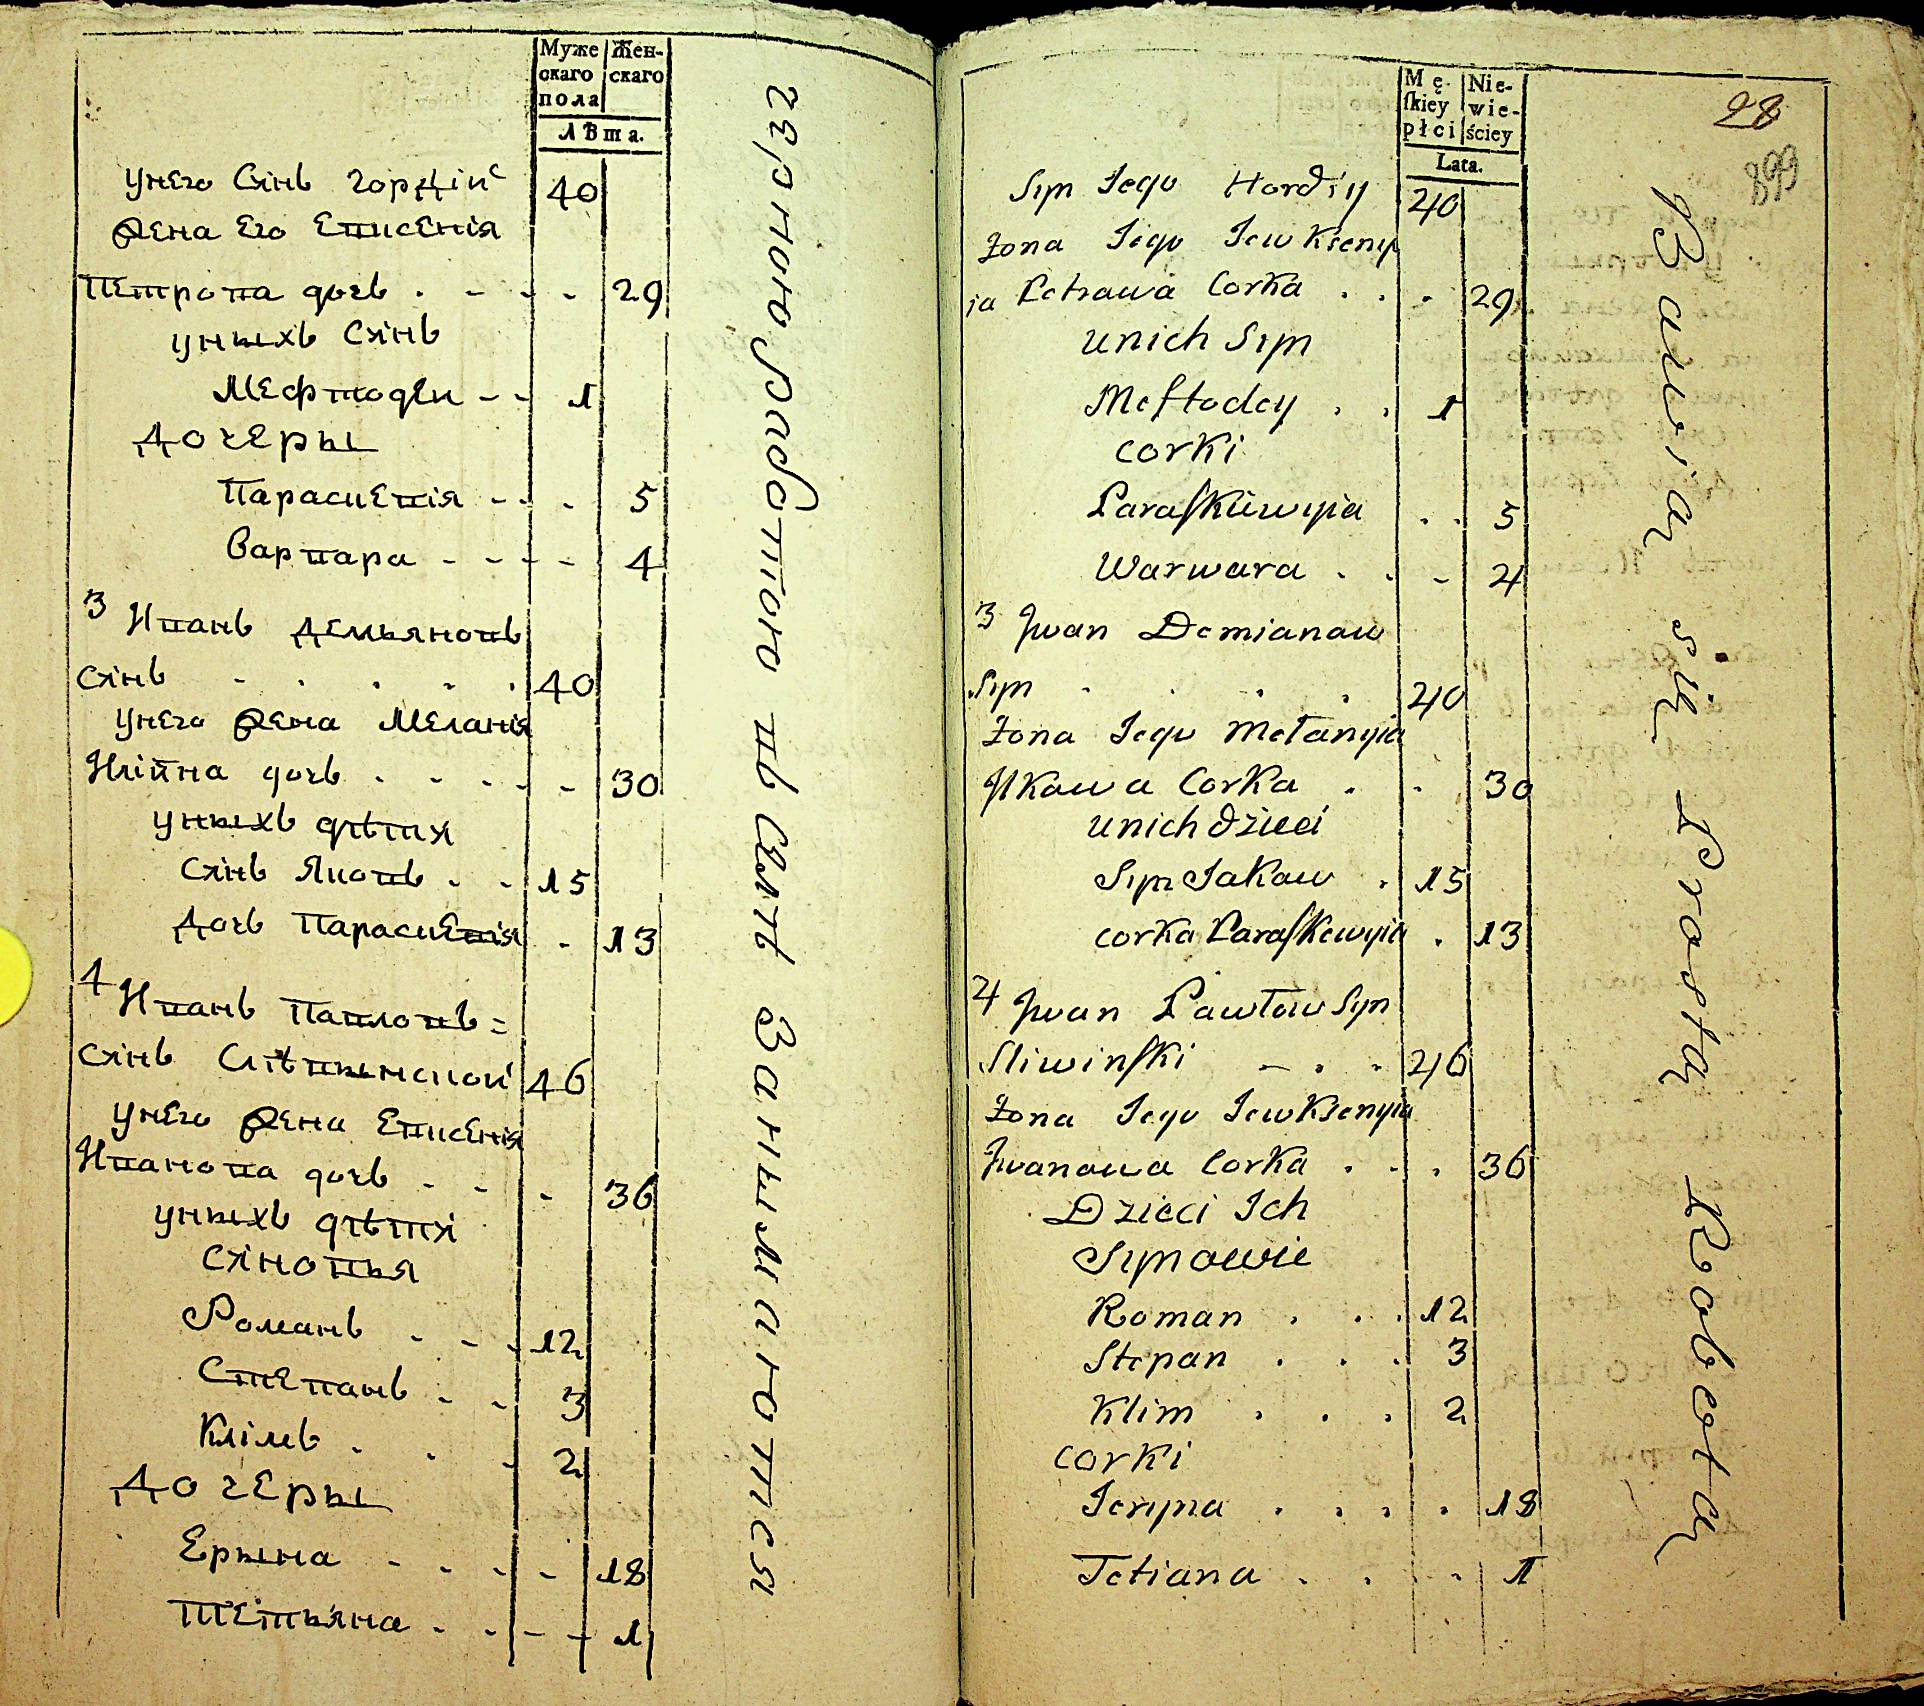 Муже
скаго
пола
Жен-
скаго
Лѣта.
унего Сынъ Гордій 40
Жена Его Евксенія
Петрова дочь . - - - 29
унихъ Сынъ
Мефтодѣи - - 1
дочеры
Параскевія - - . 5
Варвара - - - - 4
3 Иванъ демьяновъ
сынъ - . . . . 40
унего Жена Меланія
Илійна дочь . - - - - 30
уныхъ дѣтя
сынъ Яковъ . . 15
дочь Параскевія . 13
4 Иванъ Павловъ =
сынъ Слѣвынской 46
унего Жена Евксенія
Иванова дочь - - - 36
уныхъ дѣтя
сыновья
Романъ . - - 12
Степанъ . . 3
Клімъ . . . 2
дочеры
Ерына - . - - 18
Тетьяна . . - - 1
черною работою въ Селѣ Занымаются
Mę-
ſkiey
płci
Nie-
wie-
ściey
Lata.
28
899
Syn Jego Hordiy 40
Żona Jego Jewkseny
ia Petrawa Corka . . . 29
unich Syn
Meftodey . . 1
corki
Paraſkiewyia . . 5
Warwara . . - 4
3 Jwan Demianaw
Syn . . . . 40
Żona Jego Metanyia
Jlkawa Corka . . 30
unich dzieci
Syn Jakaw . 15
corka Paraſkewyia . 13
4 Jwan Pawtow Syn
Sliwinſki - . . 46
Żona Jego Jewksenyia
Jwanawa Corka . . . 36
Dzieci Ich
Synowie
Roman . . . 12
Stepan . . . 3
Klim . . . 2
corki
Jeryna . . . . 18
Tetiana . . . - 1
Bawią się Prostą Robotą